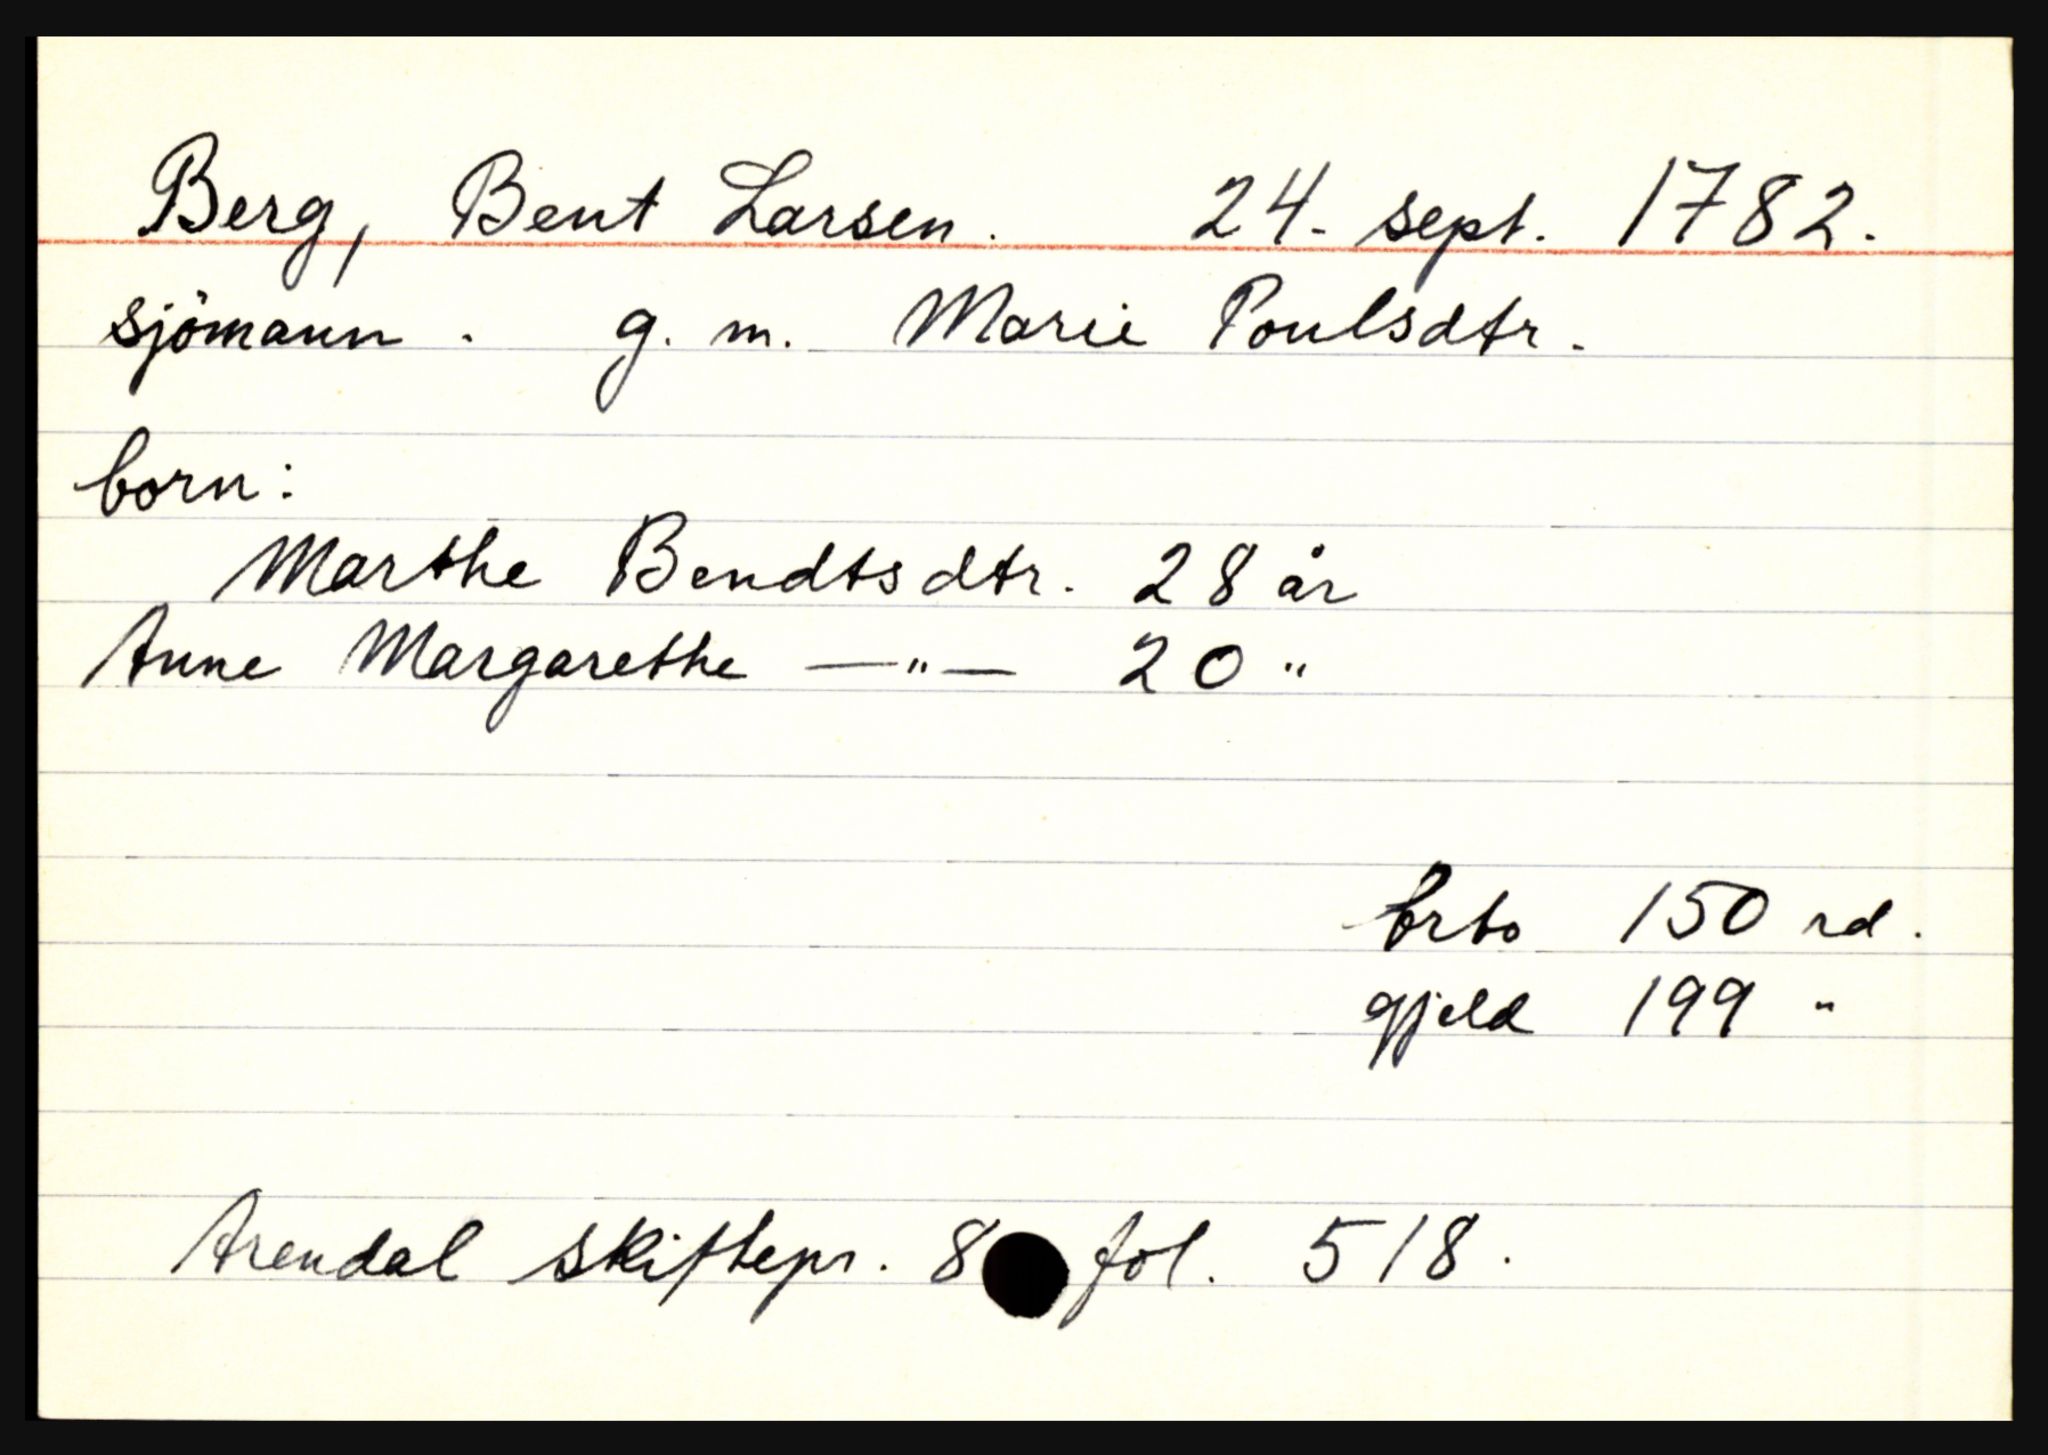 Berg, Bent Larsen. 24. sept. 1782.
sjömann. g. m. Marie Poulsdtr.
born:
Marthe Bendtsdtr. 28 år
Anne Margarethe —"— 20 "
brto 150 rd.
gjeld 199 "
Arendal skiftepr. 8 fol. 518.